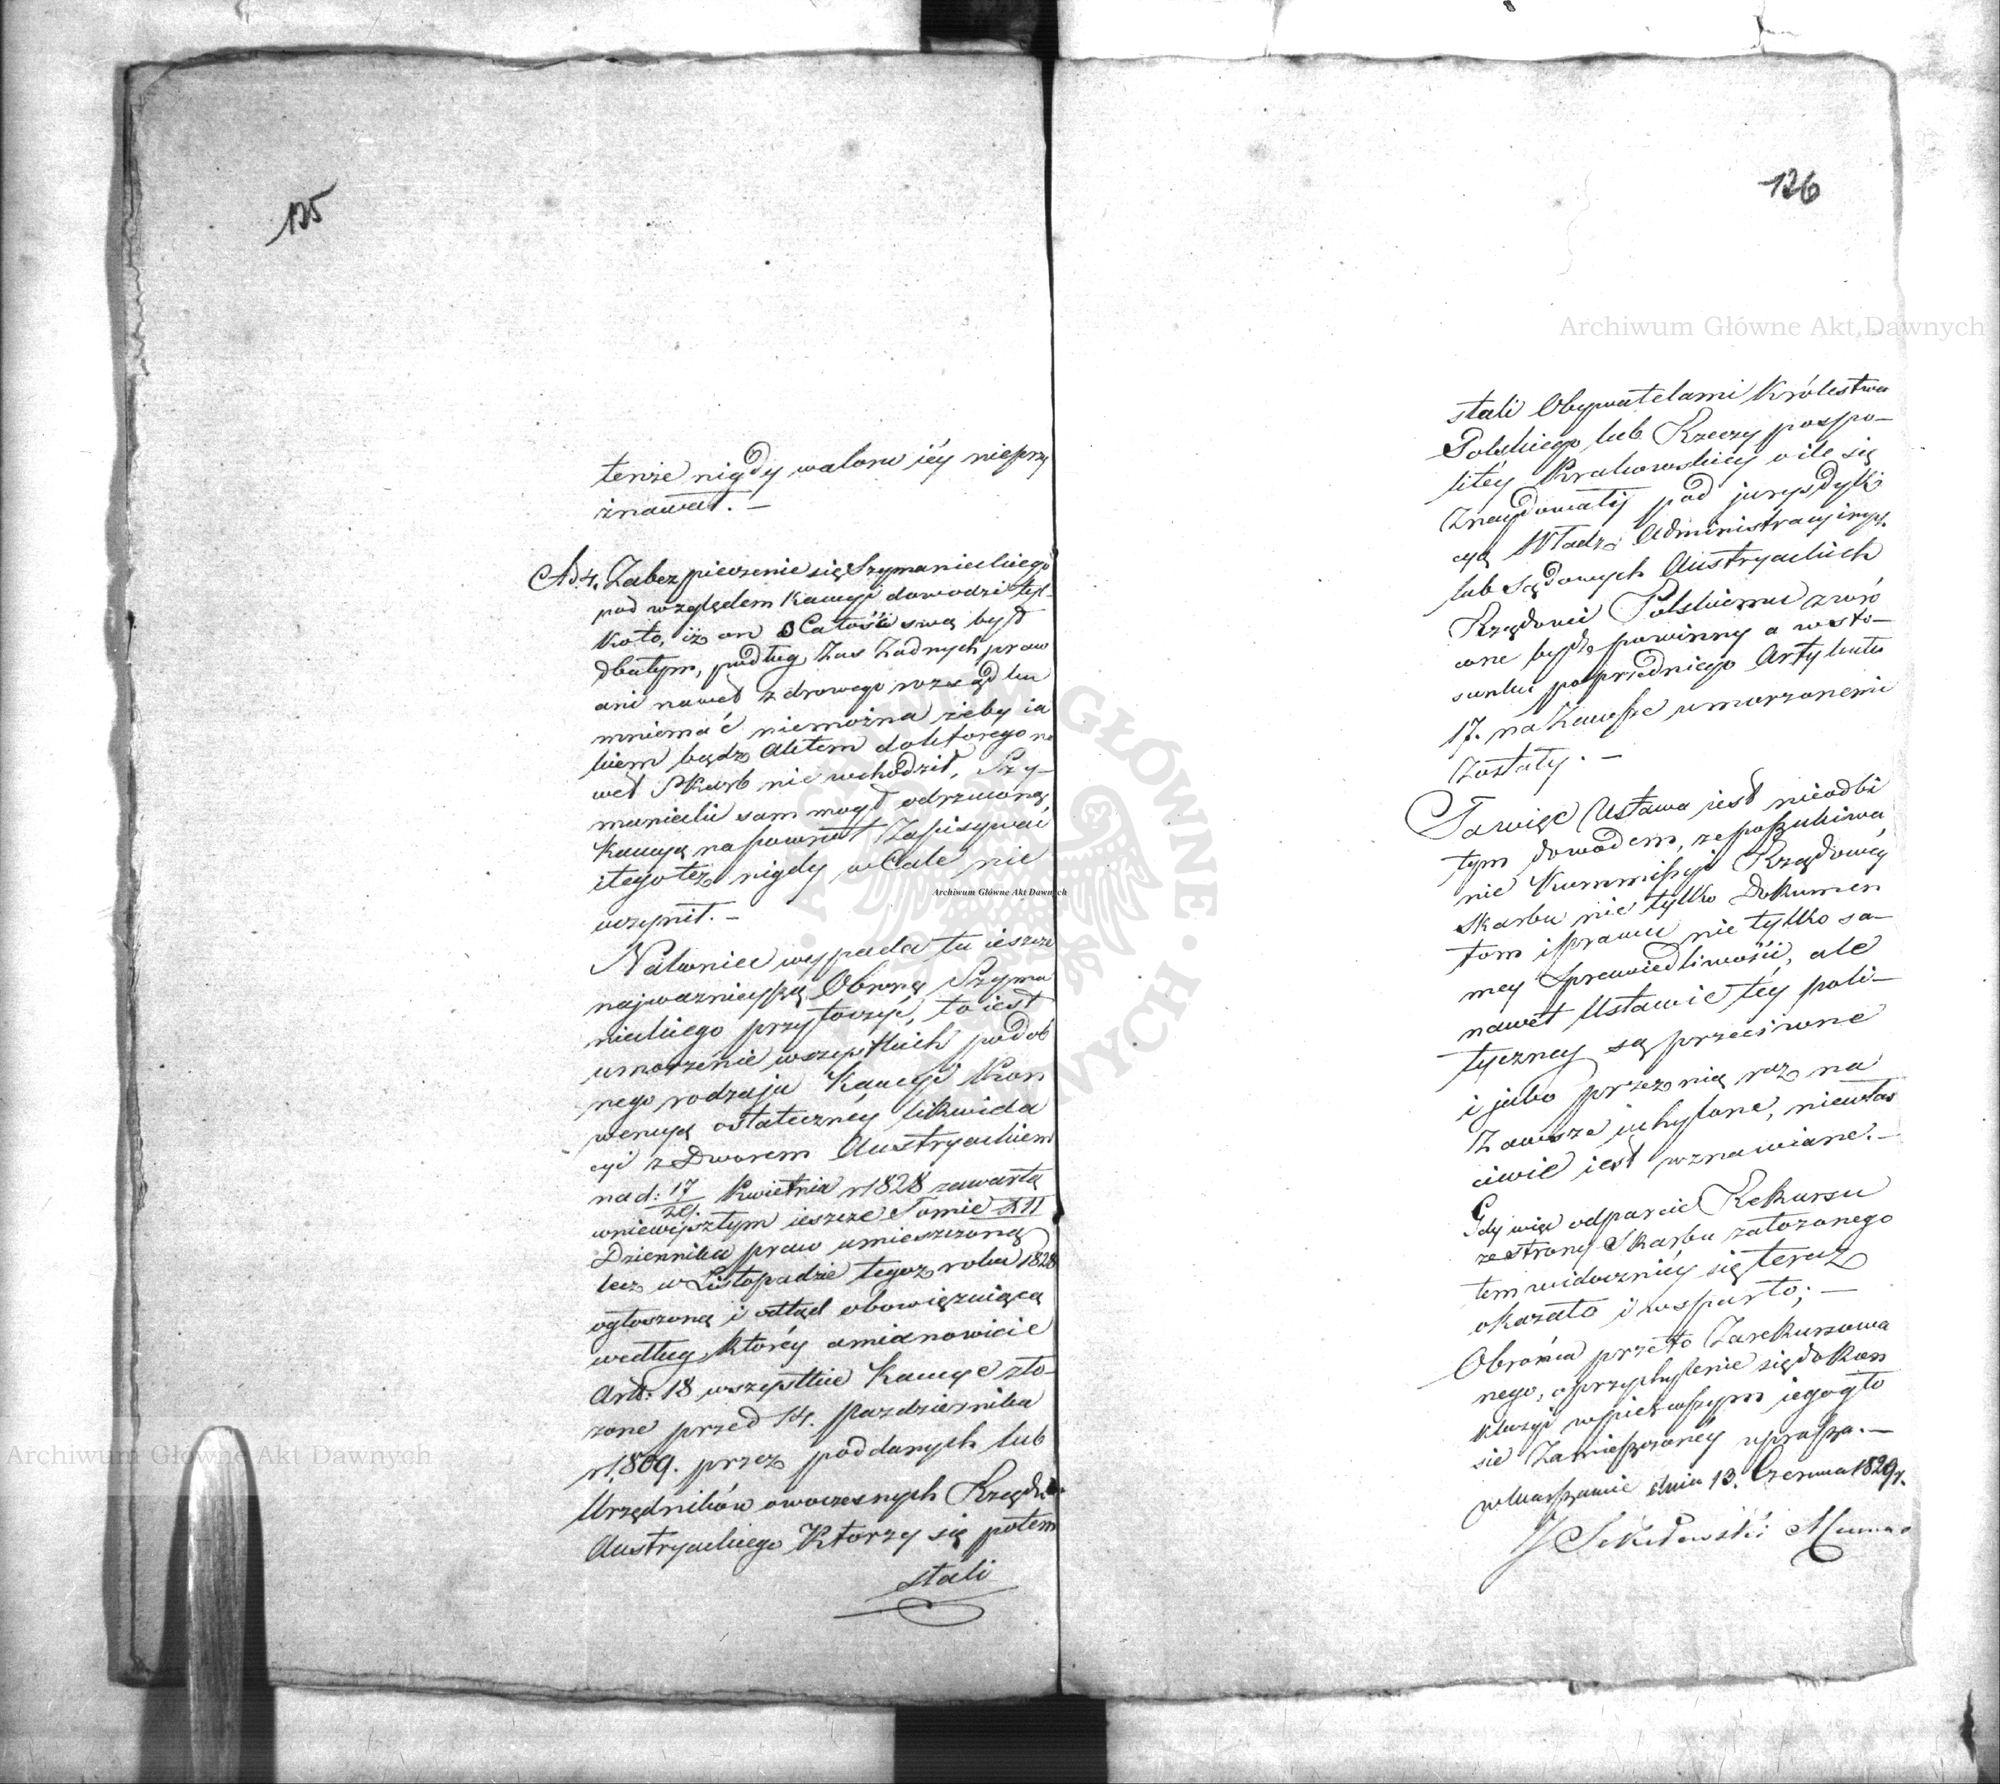 125
tenże nigdy waloru iéy nieprzy
znawał. —
Ad 4. Zabezpieczenie się Szymanieckiego
pod względem Kaucyi dowodzi tyl-
Koto, iż on o Całość swą był
dbałym, podług zas Żadnych praw
ani nawet zdrowego rozsądku
mniemać niemożna żeby ia
kiem bądz Aktem doktorego na
wet Skarb nie wchodził, Szy-
maniecki sam mógł odrzuconą
Kaucyą napowrót Zapisywać
itegotéz nigdy w Cale nie
uczynił. —
Nakoniec wypada tu ieszcze
najwazniéyszą Obronę Szyma
nieckiego przytoczyć, to iest
umorzenie wszystkich podob
nego rodzaju Kaucyi Kon
wencyą ostatecznéy likwida
cyi z Dworem Austryackiem
nad: 17/29. Kwietnia r 1828 zawartą
wniewyszłym ieszcze Tomie XII
Dziennika praw umieszczoną
lecz w Listopadzie tegoz roku 1828
ogłoszoną i odtąd obowięzuiącą
według któréy amianowicie
Art: 18 wszystkie Kaucye zło-
żone przed 14. Pazdziernika
r 1,809. przez poddanych lub
Urzędników owoczesnych Rządu
Austryackiego Ktorzy się potem
stali
126
stali Obywatelami Królestwa
Polskiego lub Rzeczy pospo-
litéy Krakowskiey o ile się
Znaydowały pod jurysdyk
cyą Władz Administracyinych
lub Sądowych Austryackich
Rządowi Polskiemu zwró
cone bydź powinny a wsto-
sunku poprzedniego Artykułu
17. na Zawsze umorzonemi
Zostały. —
Ta więc Ustawa iest nieodbi
tym dowodem, ze poszukiwa
nie Kommissyi Rządowéy
Skarbu nie tylko Dokumen
tom i prawu nie tylko sa-
mey Sprawiedliwości, ale
nawet Ustawie téy poli-
tyczney są przeciwne
i jako przez nią raz na
Zawsze uchylone, niewłas
ciwie iest wznawiane. —
Gdy więc odparcie Rekursu
ze strony Skarbu założonego
tem widoczniéy się teraz
okazało i wsparło; —
Obrońca przeto Zarekursowa
nego, o przychylenie się do Kon
kluzyi w pierwszym iego gło
sie Zamieszczonéy uprasza. —
w Warszawie dnia 13. Czerwca 1829 r.